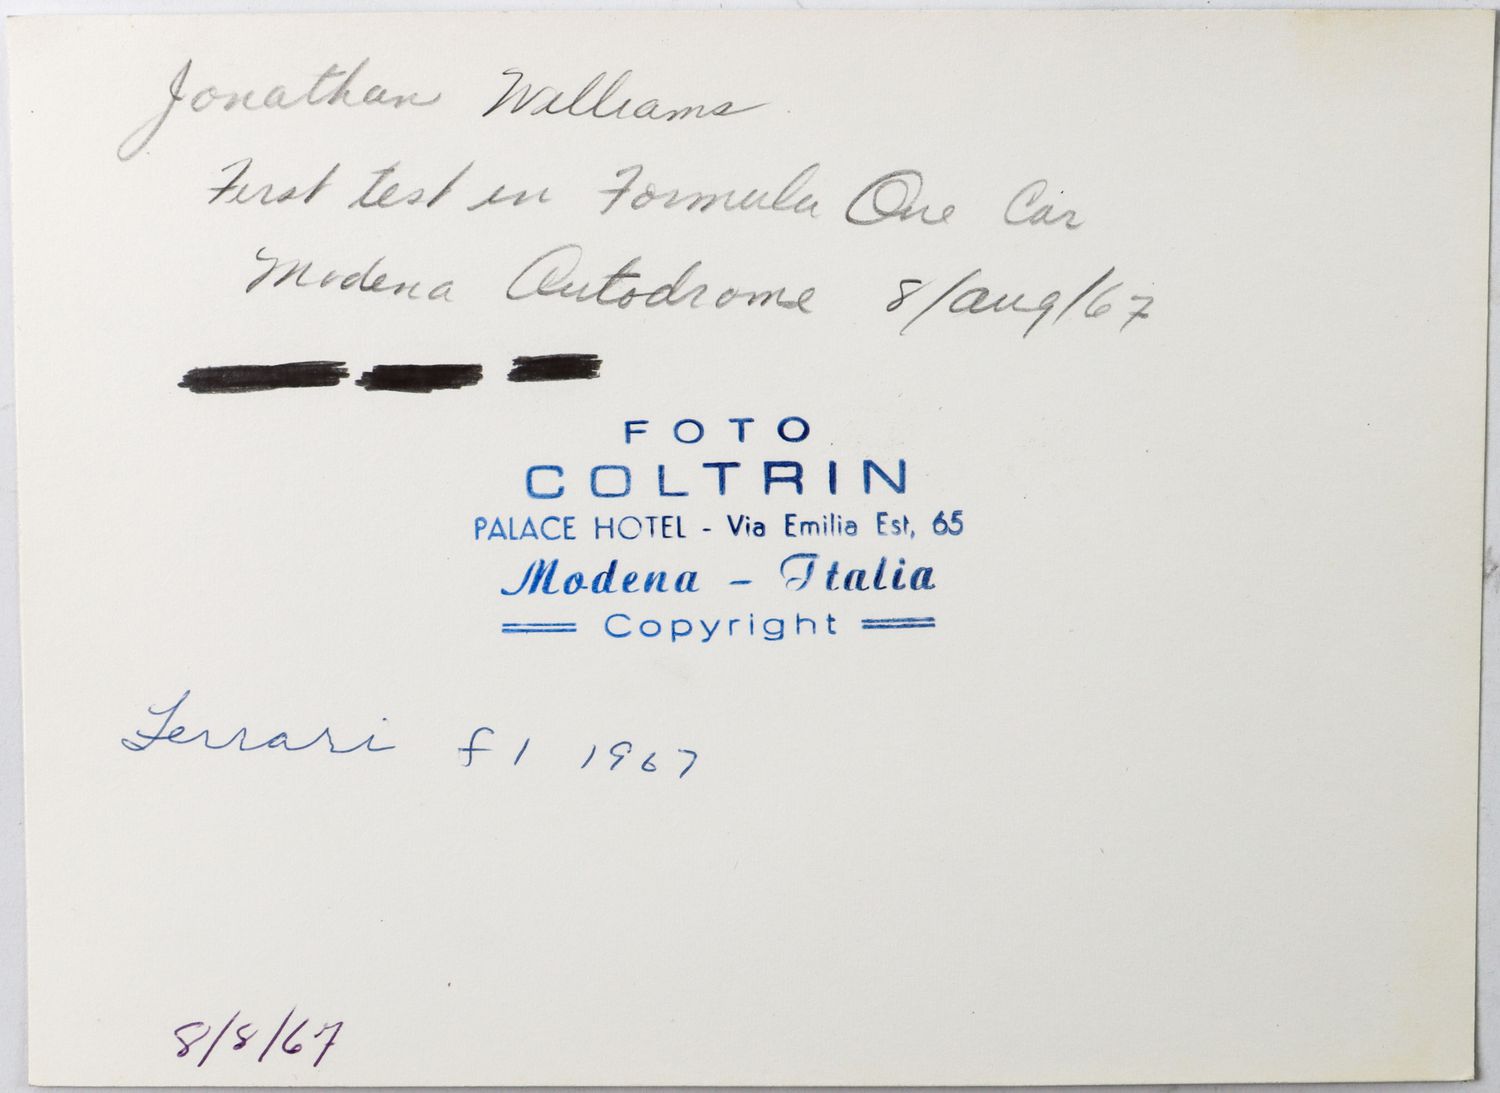 Jonathan Williams
First test in Formula One Car
Modena Autodrome 8/aug/67
FOTO
COLTRIN
PALACE HOTEL - Via Emilia Est, 65
Modena - Italia
Copyright
Ferrari f1 1967
8/8/67